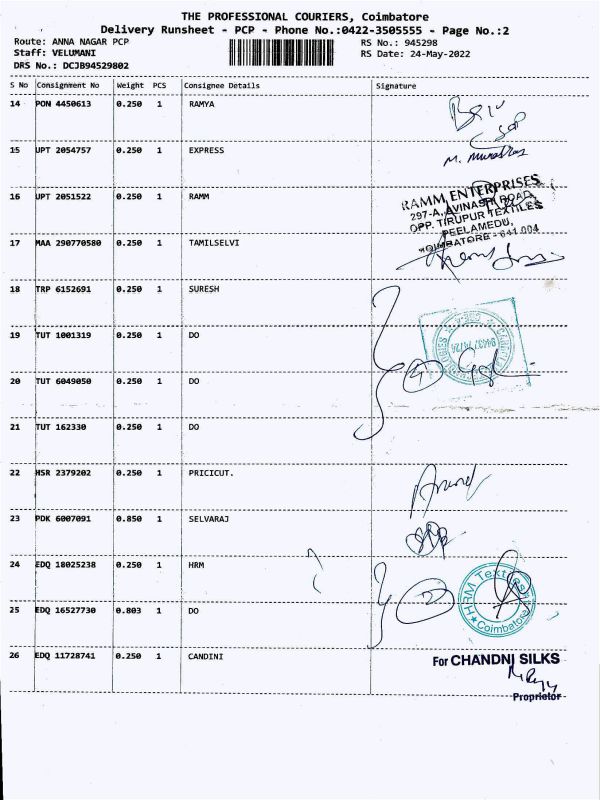 THE PROFESSIONAL COURIERS, Coimbatore
Delivery Runsheet - PCP - Phone No.:0422-3505555 - Page No.:2
Route: ANNA NAGAR PCP RS No.: 945298
Staff: VELUMANI RS Date: 24-May-2022
DRS No.: DCJB94529802
S No Consignment No Weight PCS Consignee Details Signature
14 PON 4450613 0.250 1 RAMYA
15 UPT 2054757 0.250 1 EXPRESS
16 UPT 2051522 0.250 1 RAMM
RAMM ENTERPRISES
297-A, AVINASHI ROAD,
OPP. TIRUPUR TEXTILES
PEELAMEDU,
COIMBATORE - 641 004
17 MAA 290770580 0.250 1 TAMILSELVI
18 TRP 6152691 0.250 1 SURESH
19 TUT 1001319 0.250 1 DO
20 TUT 6049050 0.250 1 DO
4
21 TUT 162330 0.250 1 DO
22 HSR 2379202 0.250 1 PRICICUT.
Anand
23 PDK 6007091 0.850 1 SELVARAJ
24 EDQ 18025238 0.250 1 HRM
HRM Textiles
2
Coimbatore
25 EDQ 16527730 0.803 1 DO
26 EDQ 11728741 0.250 1 CANDINI
For CHANDNI SILKS
Proprietor